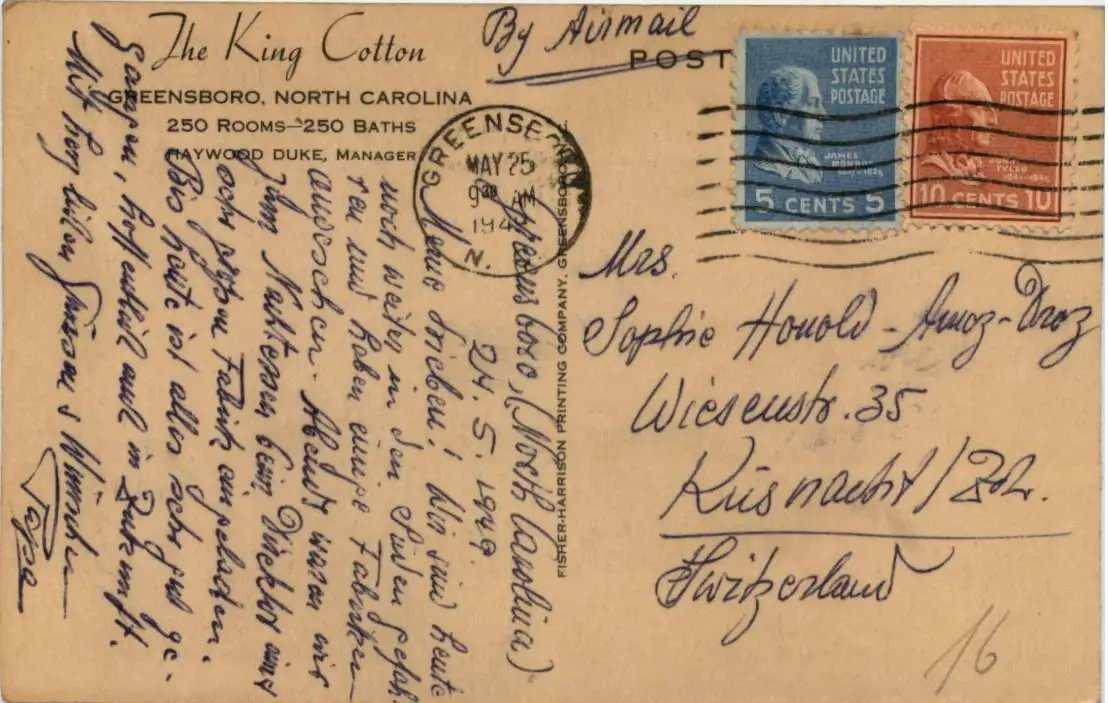 The King Cotton
GREENSBORO, NORTH CAROLINA
250 ROOMS—250 BATHS
HAYWOOD DUKE, MANAGER
By Airmail
POST
UNITED
STATES
POSTAGE
JAMES
MONROE
5 CENTS 5
UNITED
STATES
POSTAGE
JOHN
TYLER
1841-1845
10 CENTS 10
GREENSBO
MAY 25
9 30 AM
194
N.
FISHER-HARRISON PRINTING COMPANY, GREENSBORO
Greensboro, (North Carolina)
24. 5. 1949.
Meine Lieben! Wir sind heute
noch weiter in den Süden gefah-
ren und haben einige Fabriken
angesehen. Abends waren wir
zum Nachtessen beim Direktor einer
sehr grossen Fabrik eingeladen.
Bis heute ist alles sehr gut ge-
gangen, hoffentlich auch in Zukunft.
Mit herzlichen Grüssen & Wünschen
Papa
Mrs.
Sophie Honold-Amoz-Droz
Wiesenstr. 35
Küsnacht/Zch.
Switzerland
16